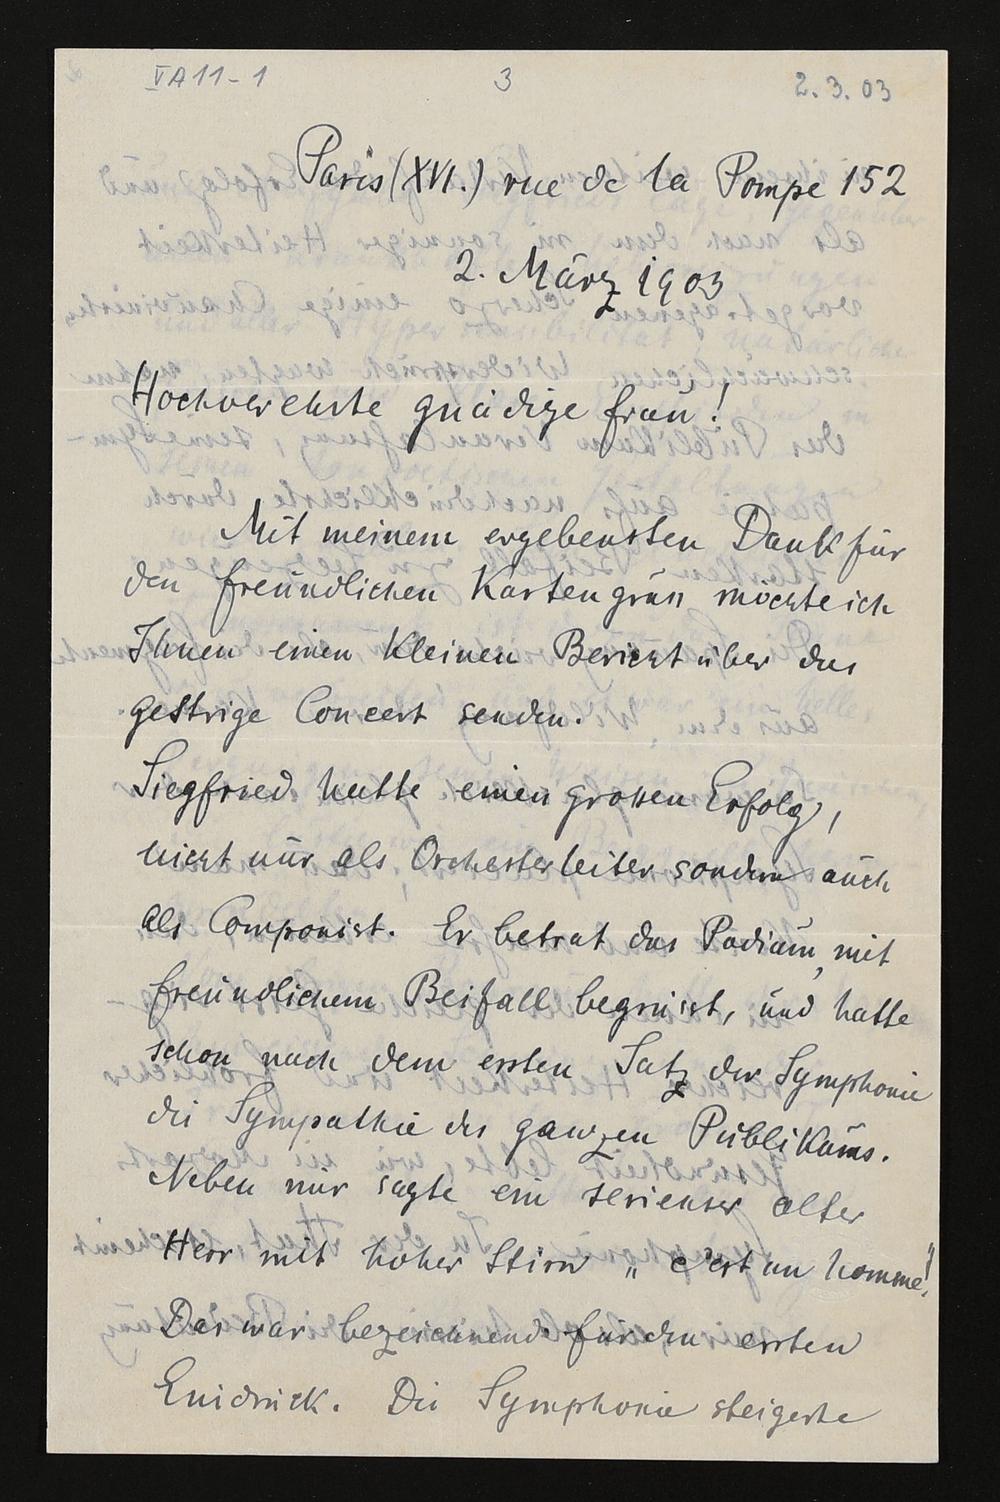 VA11-1 3 2.3.03
Paris (XVI.) rue de la Pompe 152
2. März 1903
Hochverehrte gnädige Frau!
Mit meinem ergebensten Dank für
den freundlichen Kartengruss möchte ich
Ihnen einen kleinen Bericht über das
gestrige Concert senden.
Siegfried hatte einen grossen Erfolg,
nicht nur als Orchesterleiter sondern auch
als Componist. Er betrat das Podium, mit
freundlichem Beifall begrüsst, und hatte
schon nach dem ersten Satz der Symphonie
die Sympathie des ganzen Publikums.
Neben mir sagte ein serieuser alter
Herr mit hoher Stirn „c'est un homme!"
Das war bezeichnend für den ersten
Eindruck. Die Symphonie steigerte